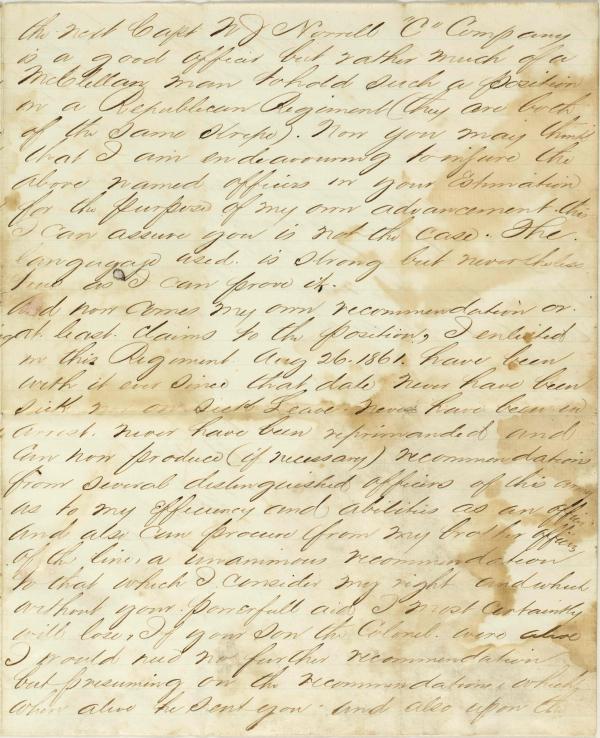 the next Capt W J Norrell "C" Company
is a good officer but rather much of a
McClellan man to hold such a position
in a Republican Regament (they are both
of the same stripe). Now you may think
that I am endeavouring to injure the
above named officers in your Estimation
for the purpose of my own advancement. this
I can assure you is not the case. The
language used is strong but nevertheless
true as I can prove it.
And now comes my own recommendation or
at least claims to the position, I enlisted
in this Regament Aug 26. 1861. have been
with it ever since that date never have been
sick nor on sick Leave never have been in
arrest. never have been reprimanded and
can now produce (if necessary) recommendation
from several distinguished officers of this
as to my Efficiency and abilities as an officer
and also can procure from my brother officers
of the line, a unanimous recommendation
to that which I consider my right and which
without your powerfull aid I most certainly
will lose, If your son the Colonel were alive
I would need no further recommendation
but presuming on the recommendation, which
when alive he sent you and also upon the